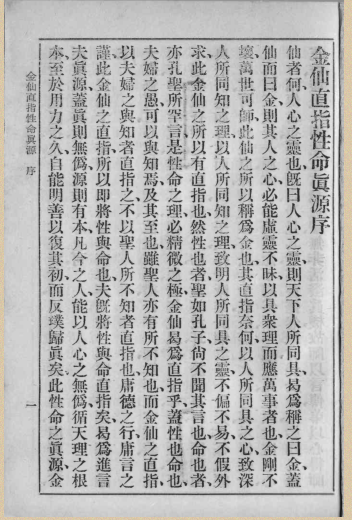 金仙直指性命眞源序
仙者何、人心之靈也、既曰人心之靈、則天下人所同具、曷爲稱之曰金、蓋
仙而曰金、則其人之心、必能虛靈不昧、以具衆理而應萬事者也、金剛不
壞、萬世可師、此仙之所以稱爲金也、其直指奈何、以人所同具之心、致深
人所同知之理、以人所同知之理、致明人所同具之靈、不偏不易、不假外
求、此金仙之所以有直指也、然性也者、聖如孔子、尙不聞其言也、命也者、
亦孔聖所罕言、是性命之理、必精微之極、金仙曷爲直指乎、蓋性也命也、
夫婦之愚、可以與知焉、及其至也、雖聖人亦有所不知也、而金仙之直指、
以夫婦之與知者直指之、不以聖人所不知者直指也、庸德之行、庸言之
謹、此金仙之直指、所以即將性與命也、夫既將性與命直指矣、曷爲進言
夫眞源、蓋眞則無僞、源則有本、凡今之人、能以人心之無僞、循天理之根
本、至於用力之久、自能明善以復其初、而反璞歸眞矣、此性命之眞源、金
金仙直指性命眞源 序
一